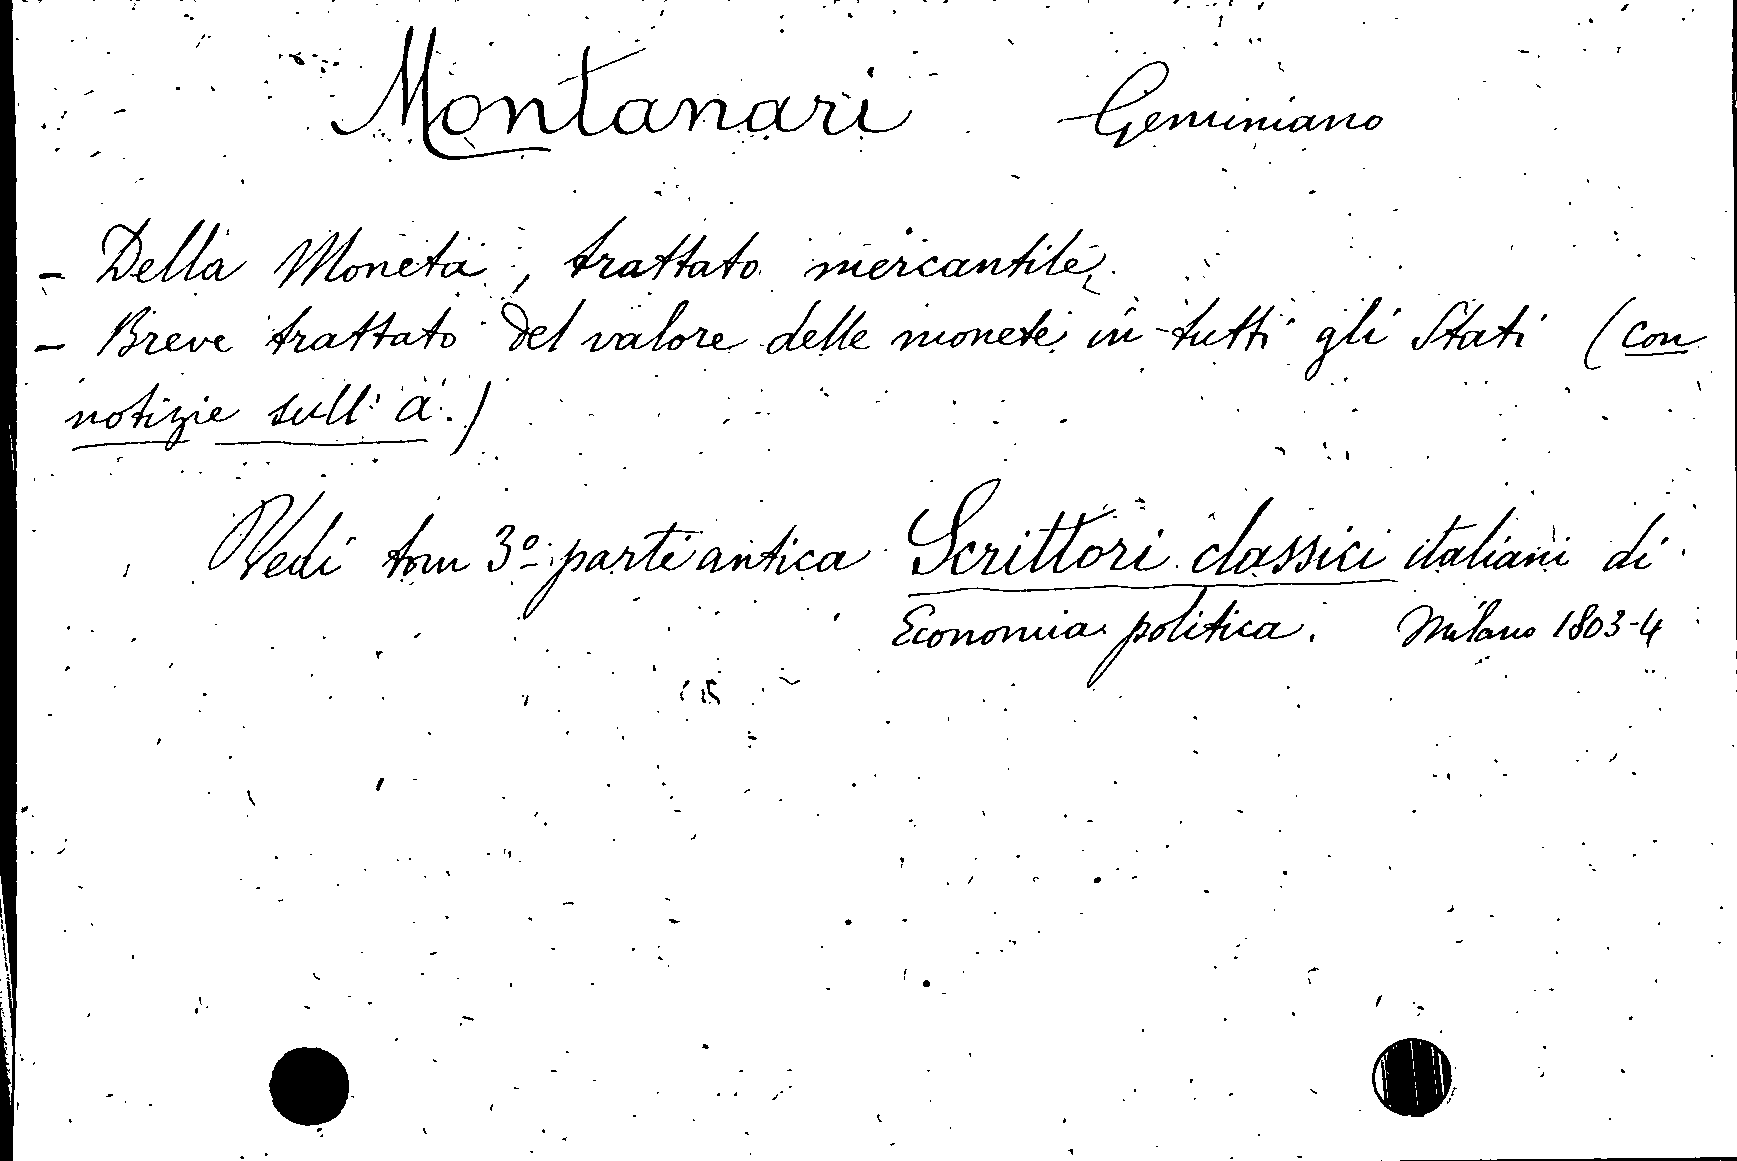 Montanari Geminiano
- Della Moneta, trattato mercantile,
- Breve trattato del valore delle monete in tutti gli Stati (con
notizie sull' a.)
Vedi tom 3º parte antica Scrittori classici italiani di
Economia politica. Milano 1803-4